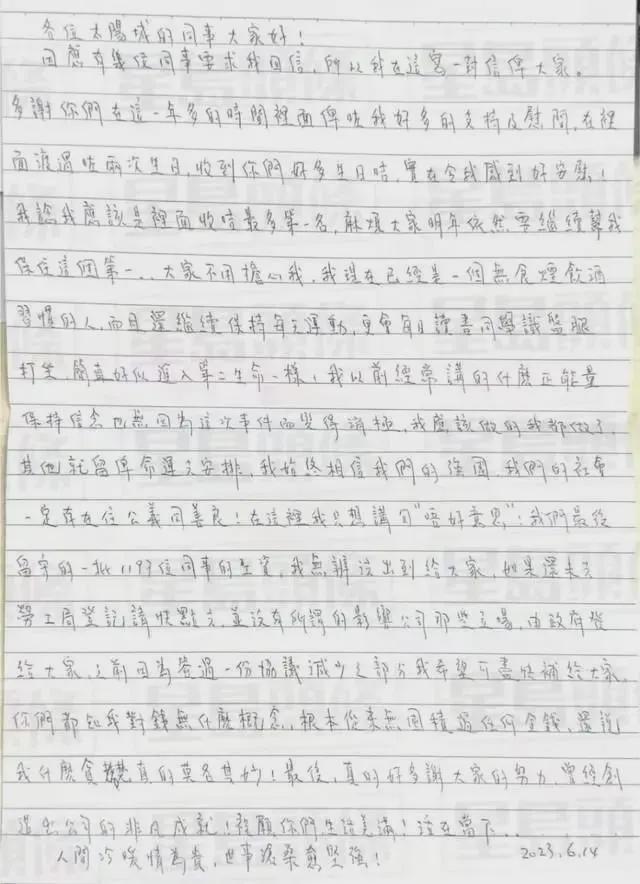 各位太陽城的同事大家好！
因應有幾位同事要求我回信，所以我在這寫一封信俾大家。
多謝你們在這一年多的時間裡面俾咗我好多的支持及慰問，在裡
面渡過咗兩次生日，收到你們好多生日咭，實在令我感到好安慰！
我諗我應該是裡面收咭最多第一名，麻煩大家明年依然要繼續幫我
保住這個第一... 大家不用擔心我，我現在已經是一個無食煙飲酒
習慣的人，而且還繼續保持每天運動，更會每日讀書同學識盤腿
打坐，簡直好似進入第二生命一樣，我以前經常講的什麼正能量
保持信念也無因為這次事件而變得消極，我應該做的我都做了，
其他就留俾命運之安排，我始終相信我們的強國，我們的社會
一定存在住公義同善良！在這裡我只想講句"唔好意思"：我們最後
留守的一批1197位同事的工資，我無辦法出到給大家，如果還未去
勞工局登記請快點去，並沒有所謂的影響公司那些立場，由政府發
給大家，之前因為簽過一份協議減少之部分我希望可盡快補給大家，
你們都知我對錢無什麼概念，根本從來無囤積過任何金錢，還說
我什麼貪婪真的莫名其妙！最後，真的好多謝大家的努力，曾經創
造出公司的非凡成就！祝願你們生活美滿！活在當下..
人間冷暖情為貴，世事滄桑愈堅強！
2023.6.14
星島頭條